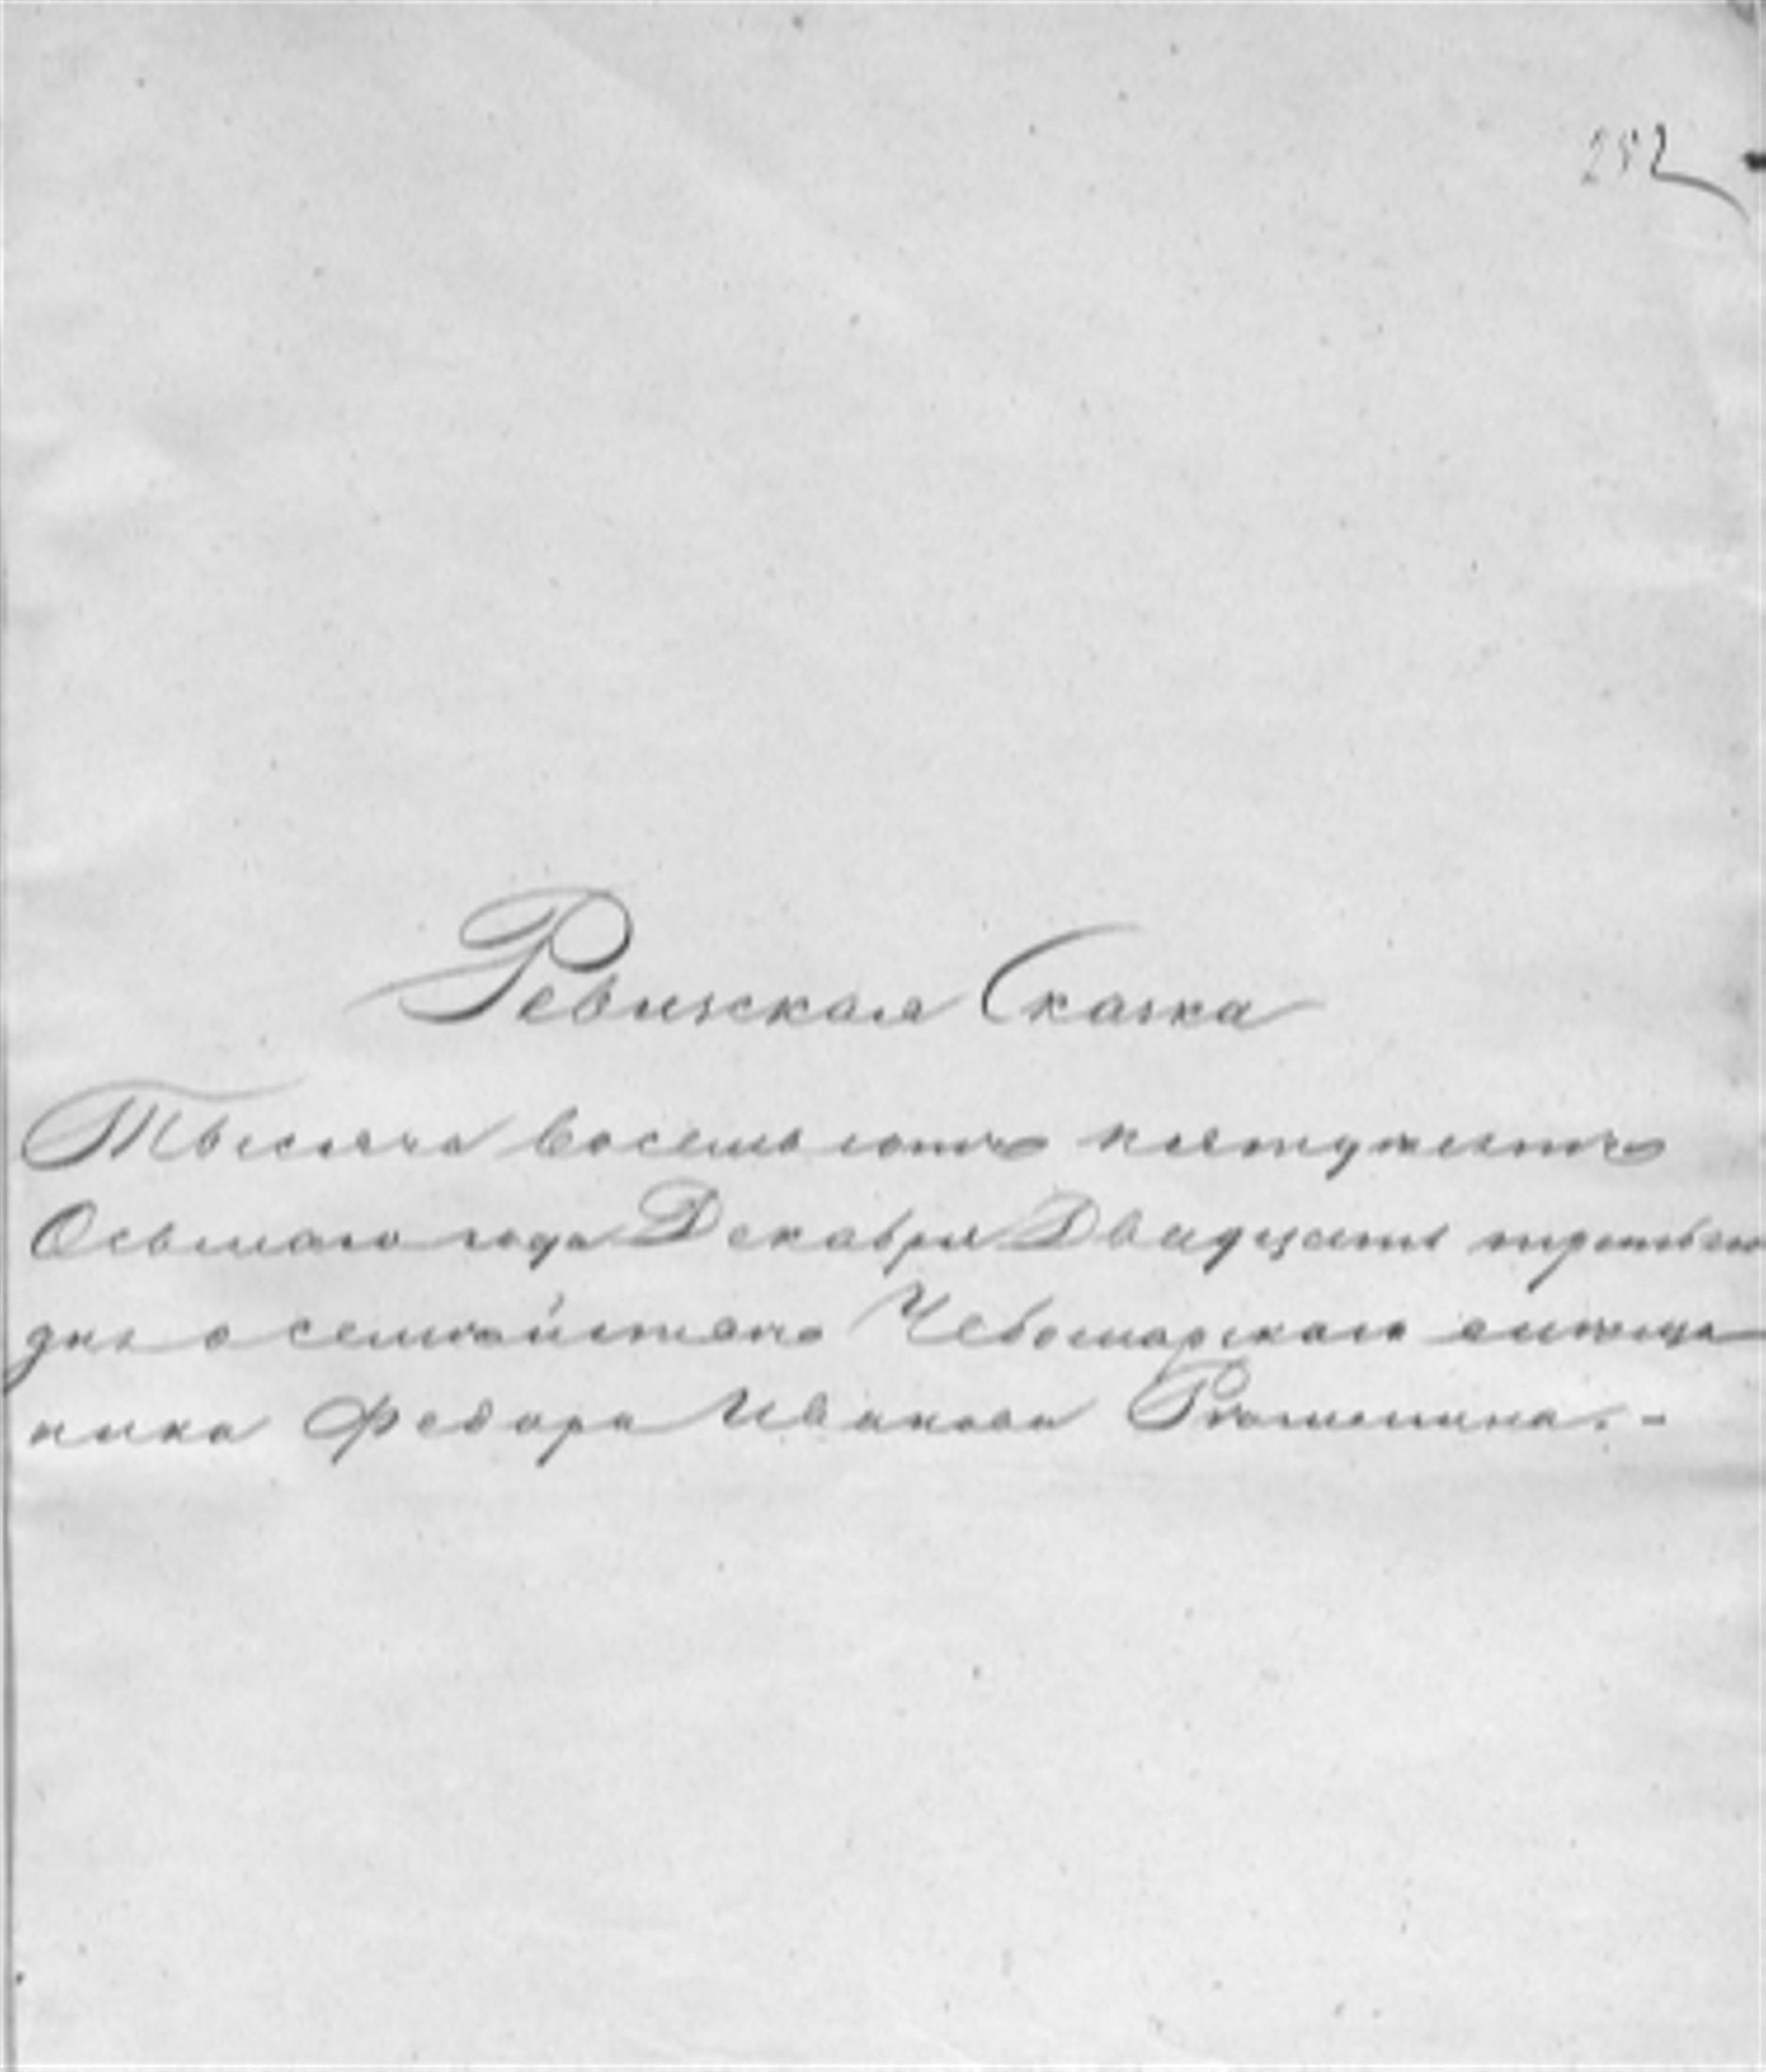 282
Ревизская Сказка
Тысяча восемь сотъ пятьдесятъ
Осьмаго года Декабря Двадцать третьяго
дня о семействѣ Чебоксарскаго мѣща
нина Федора Иванова